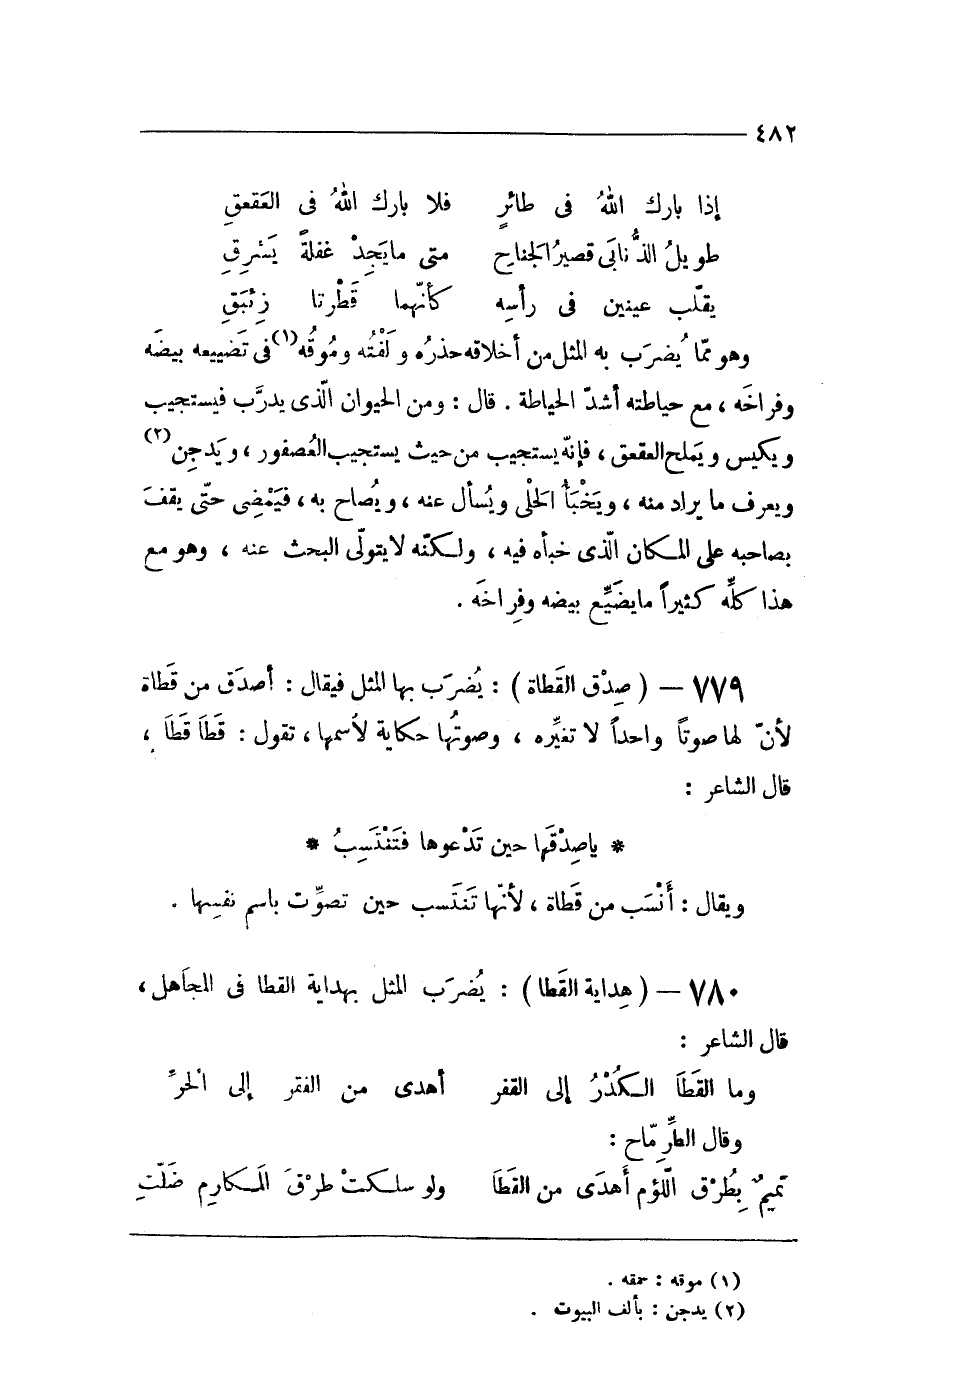 ٤٨٢
إذا بارك اللهُ فى طائرٍ فلا بارك اللهُ فى العَقعقِ
طويلُ الذُّنابَى قصيرُ الجناحِ متى مايَجِدْ غفلةً يَسْرِقِ
يقلّب عينين فى رأسِه كأنّهما قَطْرتا زِئبَقِ
وهو ممّا يُضرَب به المثل من أخلاقه حذرُه و لَفْتُه ومُوقُه(١) فى تَضييعه بيضَه
وفراخَه ، مع حياطته أشدّ الحياطة . قال : ومن الحيوان الّذى يدرَّب فيستجيب
ويكيس ويَملح العقعق ، فإنّه يستجيب من حيث يستجيب العُصفور ، ويَدجِن(٢)
ويعرف ما يراد منه ، ويَخْبَأُ الحَلْى ويُسأل عنه ، ويُصاح به ، فيَمْضِى حتّى يقفَ
بصاحبه على المكان الّذى خبأه فيه ، ولكنّه لا يتولّى البحث عنه ، وهو مع
هذا كلِّه كثيراً مايضَيِّع بيضه وفِراخَه .
٧٧٩ — ( صِدْق القَطاة ) : يُضرَب بها المثل فيقال : أصدَق من قَطاة
لأنّ لها صوتاً واحداً لا تغيِّره ، وصوتُها حكاية لأسمها ، تقول : قَطَا قَطَا ،
قال الشاعر :
* ياصِدْقَها حين تَدْعوها فتَنْتَسِبُ *
ويقال : أَنْسَب من قَطاة ، لأنّها تَنتَسب حين تصوِّت باسم نفسِها .
٧٨٠ — ( هِداية القَطا ) : يُضرَب المثل بهداية القطا فى المجاهل ،
قال الشاعر :
وما القَطَا الكُدْرُ إلى القفر أهدى من الفقر إلى الحرِّ
وقال الطِّرِمّاح :
تميمٌ بِطُرْق اللّؤم أَهدَى من القطَا ولو سلكتْ طرْقَ المَكارِم ضَلّتِ
(١) موقه : حمقه .
(٢) يدجن : يألف البيوت .